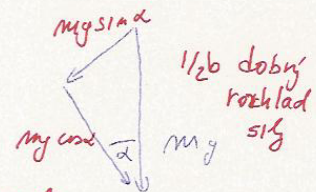 mg sin α
1/2b dobrý
rozklad
sily
mg cos α
α
mg